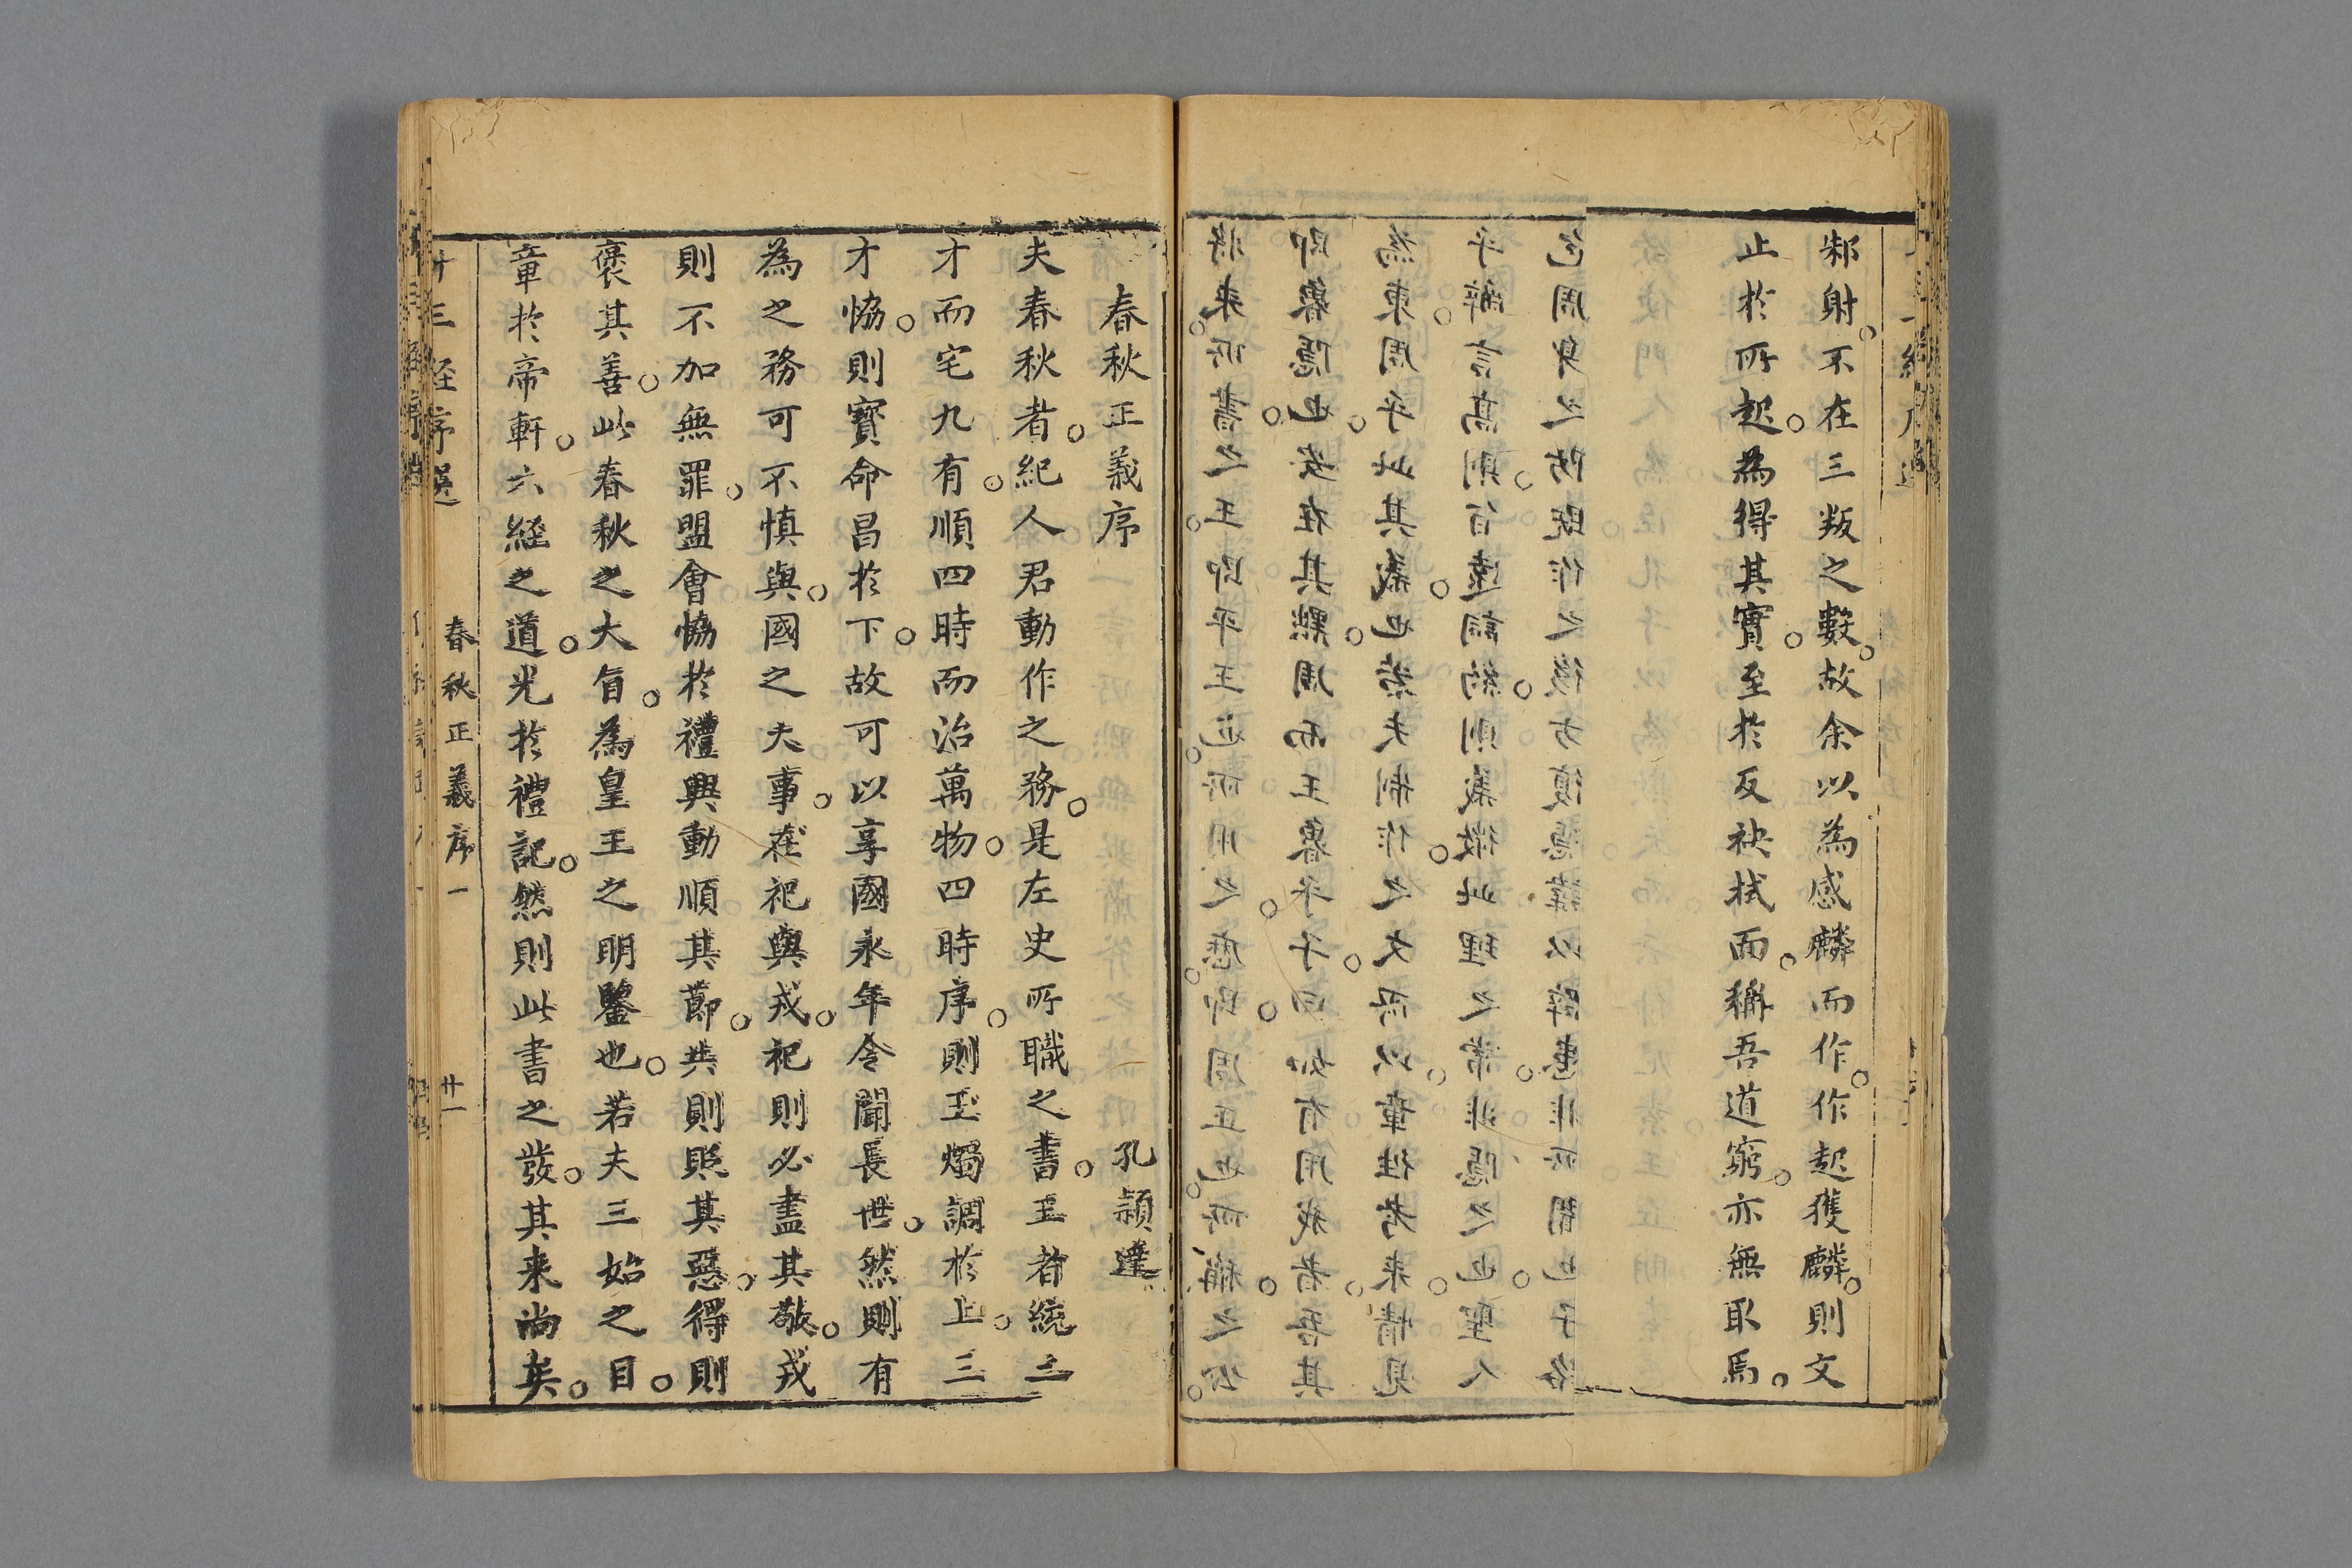 邾射。不在三叛之數。故余以為感麟而作。作起獲麟。則文
止於所起。為得其實。至於反袂拭面。稱吾道窮。亦無取焉。
將来。所書之王。即平王也。所用之歷。即周正也。所稱之公。
即魯隱也。安在其黜周而王魯乎。子曰。如有用我者。吾其
為東周乎。此其義也。若夫制作之文。所以章往考来。情見
乎辭。言高則旨遠。詞約則義微。此理之常。非隱之也。聖人
包周身之防。既作之後。方復隱諱以辟患。非所聞也。子路
春秋正義序　孔頴達
夫春秋者。紀人君動作之務。是左史所職之書。王者統三
才而宅九有。順四時而治萬物。四時序。則玉燭調於上。三
才恊。則寳命昌於下。故可以享國永年。令聞長世。然則有
為之務。可不慎與。國之大事。在祀與戎。祀則必盡其敬。戎
則不加無罪。盟會恊於禮。興動順其節。失則貶其惡。得則
褒其善。此春秋之大旨。為皇王之明鑒也。若夫三始之目。
章於帝軒。六經之道。光於禮記。然則此書之發。其来尚矣。
十三経序選　春秋正義序一　廿一